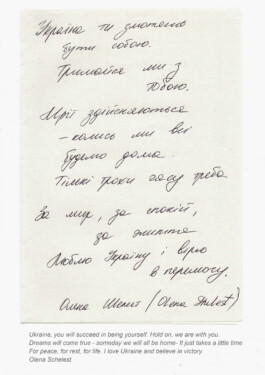 Україна ти зможеш
бути собою.
Тримайся ми з
тобою.
Мрії здійсняються
– колись ми всі
будемо дома.
Тількі трохи часу треба
За мир, за спокій,
за життя
Люблю Україну і вірю
в перемогу.
Олена Шелест (Olena Shelest)
Ukraine, you will succeed in being yourself. Hold on, we are with you.
Dreams will come true - someday we will all be home- It just takes a little time
For peace, for rest, for life. I love Ukraine and believe in victory
Olena Schelest